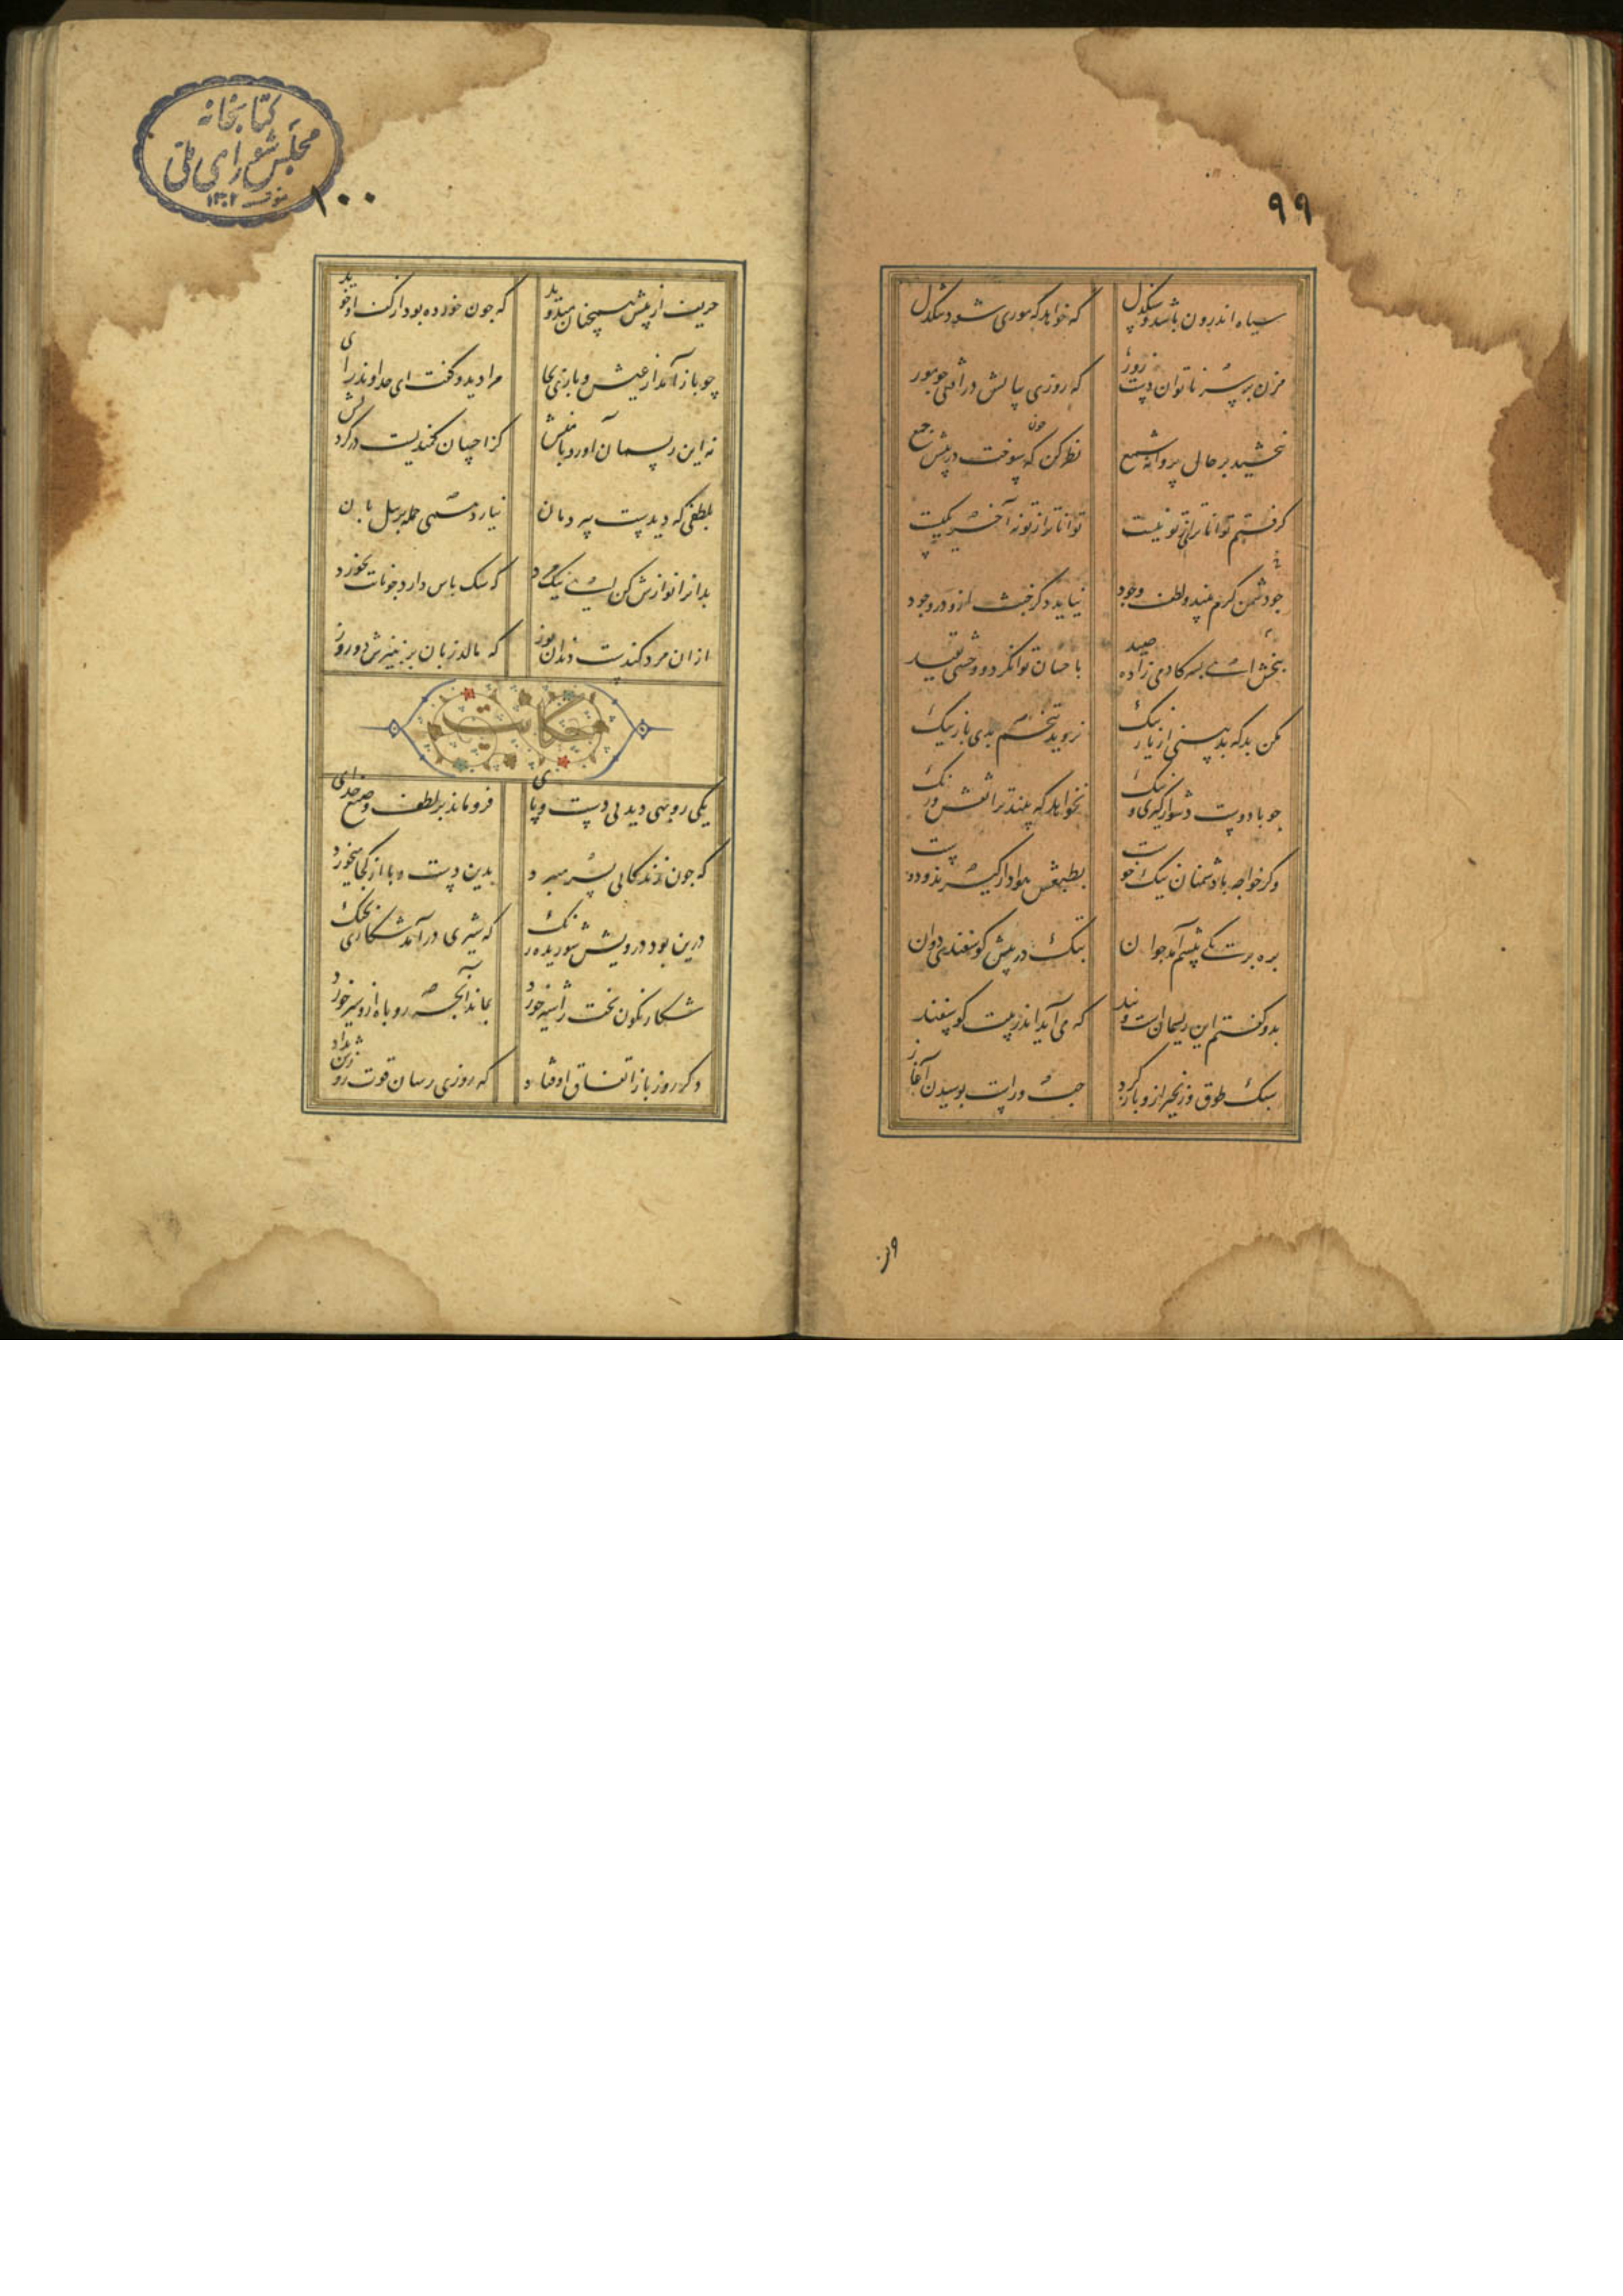 ۹۹
سیاه اندرون باشد و سنگدل که خواهد که موری شود تنگدل
مزن بر سر ناتوان دست زور که روزی بپایش در افتی چو مور
نبخشید بر حال پروانه شمع نظر کن که چون سوخت در پیش جمع
گرفتم ز تو ناتوانتر بسیست تواناتر از تو هم آخر کسیست
چو دشمن کرم بیند و لطف وجود نیاید دگر خبث ازو در وجود
ببخش ای پسر کادمی زاده صید باحسان توان کرد و وحشی بقید
مکن بد که بد بینی از یار نیک نروید ز تخم بدی بار نیک
چو با دوست دشوار گیری و تنگ نخواهد که بیند ترا نقش و رنگ
وگر خواجه با دشمنان نیک خوست بسی برنیاید که گردند دوست
بره بر یکی پیشم آمد جوان بتک در پیش گوسفندی دوان
بدو گفتم این ریسمانست و بند که می آید اندر پیت گوسفند
سبک طوق و زنجیر ازو باز کرد چپ و راست پوییدن آغاز
وز
کتابخانه
مجلس شورای ملی
۱۳۰۲
۱۰۰
حریف از پیش همچنان میدوید که جو خورده بود از کف او خوید
چو باز آمد از عیش و بازی بجای مرا دید و گفت ای خداوند رای
نه این ریسمان میاورد با منش که احسان کمندیست در گردنش
بلطفی که دیدست پیل دمان نیارد همی حمله بر پیلبان
بدانرا نوازش کن ای نیک مرد که سگ پاس دارد چو نانت بخورد
بر آن مرد کندست دندان یوز که مالد زبان بر پنیرش دو روز
حکایت
یکی روبهی دید بی دست و پای فرو ماند در لطف و صنع خدای
که چون زندگانی بسر میبرد بدین دست و پا از کجا میخورد
درین بود درویش شوریده رنگ که شیری در آمد شکاری بچنگ
شکار نگون بخت را شیر خورد بماند آنچه روباه ازو سیر خورد
دگر روز باز اتفاق اوفتاد که روزی رسان قوت روزش بداد